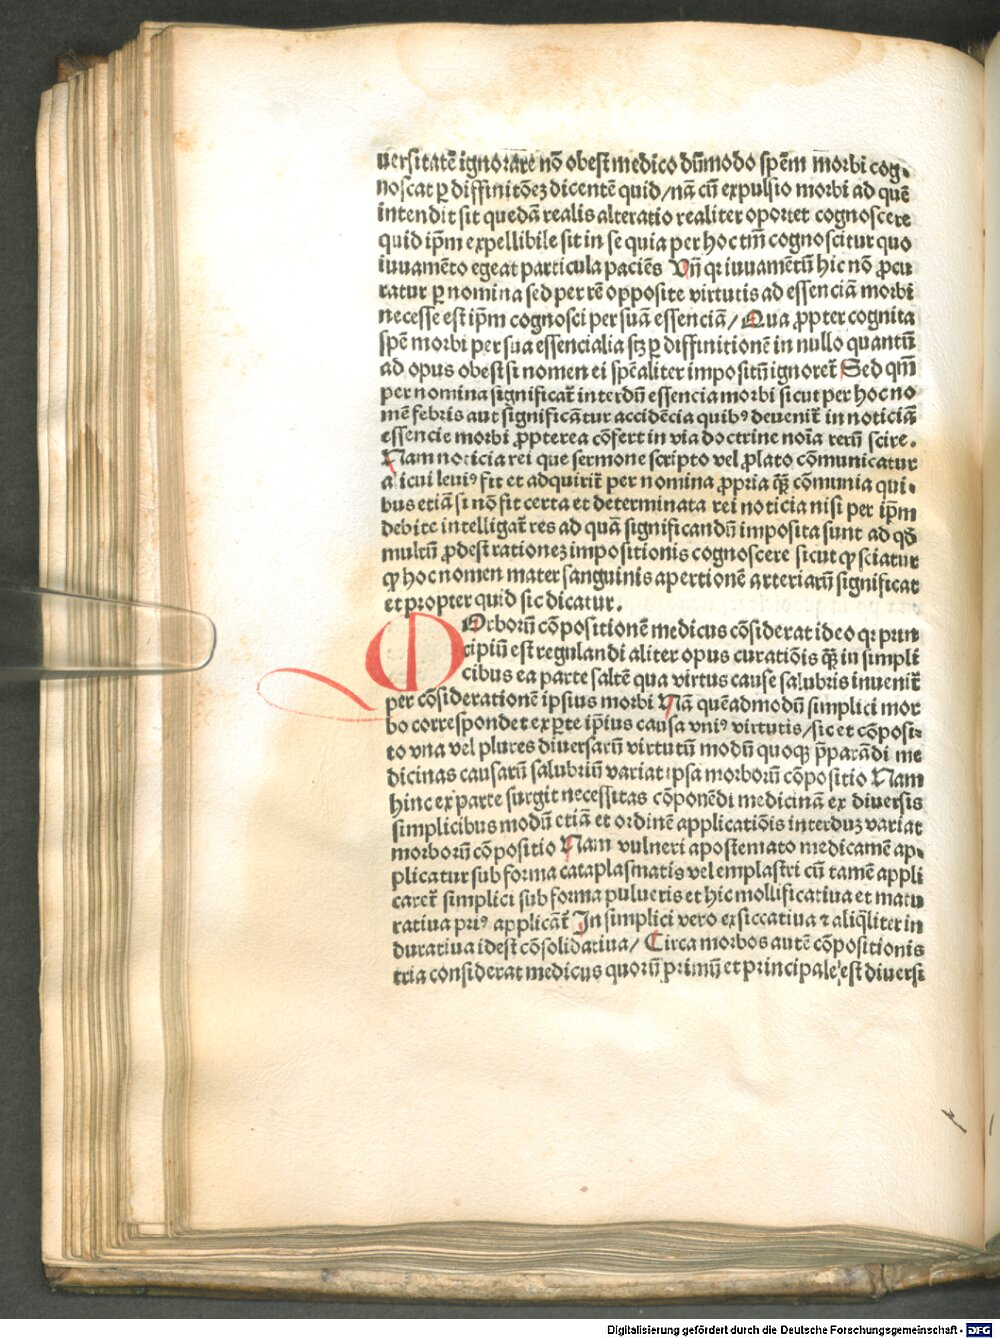 uersitatē ignorare nō obest medico dūmodo spēm morbi cog-
noscat ꝑ diffinitōeꝫ dicentē quid/nā cū expulsio morbi ad quē
intendit sit quedā realis alteratio realiter oportet cognoscere
quid ip̄m expellibile sit in se quia per hoc tm̄ cognoscitur quo
iuuamēto egeat particula paciēs Vn̄ qꝛ iuuamētū hic nō ꝓcu
ratur ꝑ nomina sed per rē opposite virtutis ad essenciā morbi
necesse est ip̄m cognosci per suā essenciā/ Qua ꝓpter cognita
spē morbi per sua essencialia sꝫ ꝑ diffinitionē in nullo quantū
ad opus obest si nomen ei spēaliter impositū ignoret᷑ Sed qm̄
per nomina significat᷑ interdū essencia morbi sicut per hoc no
mē febris aut significātur accidēcia quibꝰ deuenit᷑ in noticiā
essencie morbi ꝓpterea cōfert in via doctrine noīa rerū scire.
Nam noticia rei que sermone scripto vel ꝓlato cōmunicatur
alicui leuiꝰ fit et adquirit᷑ per nomina ꝓpria qꝫ̄ cōmunia qui-
bus etiā si nō fit certa et determinata rei noticia nisi per ip̄m
debite intelligat᷑ res ad quā significandū imposita sunt ad qd̄
multū ꝓdest rationeꝫ impositionis cognoscere sicut ꝙ sciatur
ꝙ hoc nomen mater sanguinis apertionē arteriarū significat
et propter quid sic dicatur.
MOrborū cōpositionē medicus cōsiderat ideo qꝛ prin
cipiū est regulandi aliter opus curatiōis qꝫ̄ in simpli
cibus ea parte saltē qua virtus cause salubris inuenit᷑
per cōsiderationē ipsius morbi Nā quēadmodū simplici mor
bo correspondet ex ꝑte ip̄ius causa vniꝰ virtutis/sic et cōposi-
to vna vel plures diuersarū virtutū modū quoqꝫ p̄parādi me
dicinas causarū salubriū variat ipsa morborū cōpositio Nam
hinc ex parte surgit necessitas cōponēdi medicinā ex diuersis
simplicibus modū etiā et ordinē applicatiōis interduꝫ variat
morborū cōpositio Nam vulneri apostemato medicamē ap-
plicatur sub forma cataplasmatis vel emplastri cū tamē appli
caret᷑ simplici sub forma pulueris et hic mollificatiua et matu
ratiua priꝰ applicāt᷑ In simplici vero exsiccatiua ⁊ aliqͣliter in
duratiua idest cōsolidatiua/ Circa morbos autē cōpositionis
tria considerat medicus quorū primū et principale est diuersi
Digitalisierung gefördert durch die Deutsche Forschungsgemeinschaft - DFG